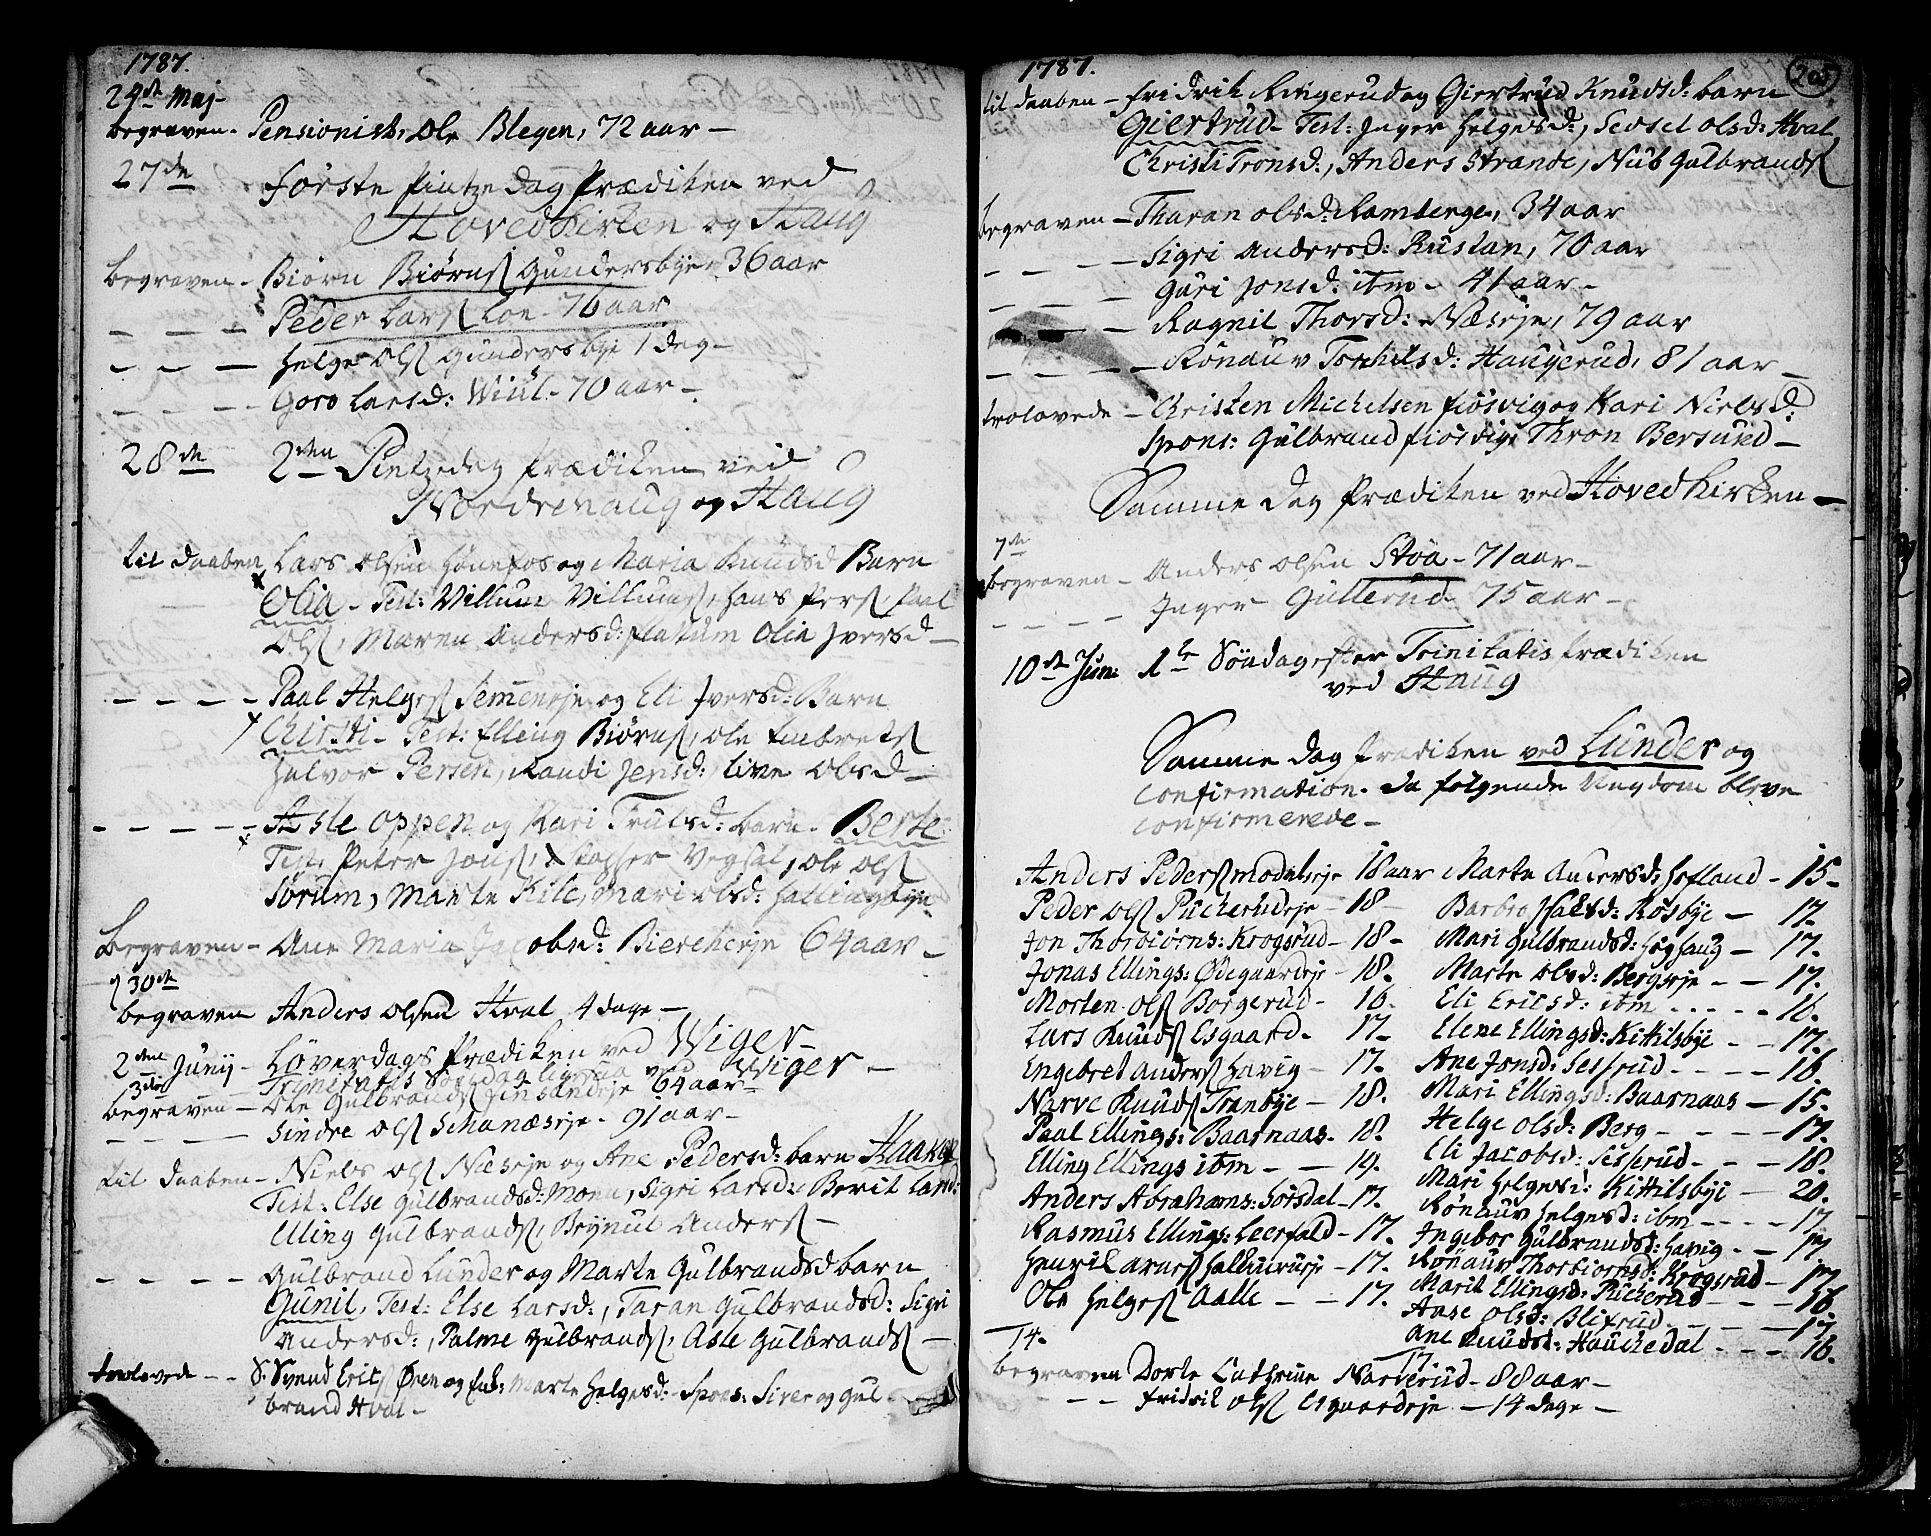 1787.
24de Maj-
begraven. Pensionist, Ole Blegen, 72 aar -
27de første Pintze Dag Prædiken ved
Hovedkirken og Haug
begraven- Biørn Biørnſ Gundersbye, 36 aar
- - - - Peder Larſ Loe - 76 aar
- - - - Helge Olſ Gundersbye 1 dag-
- - - - Goro Larsd: Wiul - 70 aar -
28de 2den Pintzedag Prædiken ved
Nordrehaug og Haug
til Daaben, Lars Olsen Hønefos og Maria Knudsd Barn
Olia - Test: Villum Villumſ, Hans Perſ, Paal
Olſ, Maren Andersd: Flattum Olia Iversd -
- - - - Paal Helgeſ Semmeneje og Eli Iversd: Barn
Christi - Test: Elling Biørnſ, Ole Embretſ
Halvor Persen, Randi Jensd: Live Olsd -
- - - - - Asle Oppen og Kari Trulsd: barn - Berte
Test: Peter Jonſ, Vegsal, Ole Olſ
Sørum, Marte Kile, Mari Olsd: Hallingbye
Begraven - Ane Maria Jacobsd: Biereherje 64 aar -
d 30de
begraven Anders Olsen Hval, 4 dage -
2den Junij - Løverdags Prædiken ved Wiger -
3die Trinitatis Søndag ligesaa ved Wiger -
begraven - Ole Gulbrandſ 64 aar -
- - - - Sindre Olſ Schanæseje - 91 aar -
til Daaben - Niels Olſ Næseje og Ane Pedersd: barn Haaken
Test: Else Gulbrandsd: Moen, Sigri Larsd: Berit Larsd:
Elling Gulbrandſ, Brynul Anderſ -
- - - - Gulbrand Lunder og Marte Gulbrandsd barn
Gunil, Test: Else Larsd:, Taran Gulbrandsd: Sigri
Andersd:, Palme Gulbrandſ, Asle Gulbrandſ -
trolovede - - S. Svend Ericſ Øren og Enk: Marte Helgesd: - Spons: Siver og Gul
brand Hval -
1787. 205
til Daaben - Fridrik Ringerud og Giertrud Knudsd: barn
Giertrud - Test: Inger Helgesd:, Sedsel Olsd: Hval
Christi Tronsd:, Anders Strande, Nub Gulbrandſ
begraven - Tharan Olsd: Ramberge, 34 aar
- - - - Sigri Andersd: Rustan, 70 aar
- - - Guri Jonsd: ibm - 41 aar -
- - - Ragnil Thorsd: Næseje, 79 aar
- - - - Rønauv Torkilsd: Haugerud, 81 aar -
trolovede - Christen Michelsen Fiøsvig og Kari Nielsd:
Spons: Gulbrand Fiøsvig, Thron Bersund -
Samme Dag Prædiken ved Hovedkirken -
7de
begraven - Anders Olsen Støa - 71 aar -
- - - - Inger Gullerud 75 aar -
10de Jun: 1te Søndag efter Trinitatis Prædiken
ved Haug
Samme Dag Prædiken ved Lunder og
Confirmation. Da følgende Ungdom bleve
Confirmerede -
Anders Pederſ Modaleje 18 aar Marte Andersd: Hofland - 15 -
Peder Olſ Pucherudeje - 18 - Barbro Halsd: Røsbye - 17.
Jon Thorbiørns: Krogsrud - 18 - Mari Gulbrandsd: Høghaug - 17.
Jonas Ellings: Ødegaardeje - 18. Marte Olsd: Bergseje - - 17.
Morten Olſ Borgerud - 16. Eli Ericsd: ibm - - - - - 16.
Lars Knudſ Esgaard - 17. Elene Ellingsd: Kittilsbye - - 17.
Engebret Anderſ Havig - 17. Ane Jonsd: Sesserud - - - - 16
Narve Knudſ Tranbye - 18. Mari Ellingsd: Baarnaas - 15.
Paal Ellings: Baarnaas. 18. Helge Olsd: Berg - - - - 17.
Elling Ellings ibm - - 19. Eli Jacobsd: Sesserud - - - 18.
Anders Abrahams: Sørsdal - 17. Mari Helgesd: Kittilsbye - 20.
Rasmus Ellings: Leerfald - 17. Rønauv Helgesd: ibm - - - - 17
Henric Arneſ - 17. Ingebor Gulbrandsd: Havig - - 17
Ole Helgeſ Aalle - - 17. Rønauv Thorbiornsd: Krogsrud - 17
Marit Ellingsd: Pucherud - - - 16
Anse Olsd: Blixrud - - - - 17
Ane Knudsd: Hauchedal - - - 16.
14. 17
begraven Dorte Cathrine Narverud - 88 aar -
- - - Fridric Olſ Esgaardeje - 14 dage -